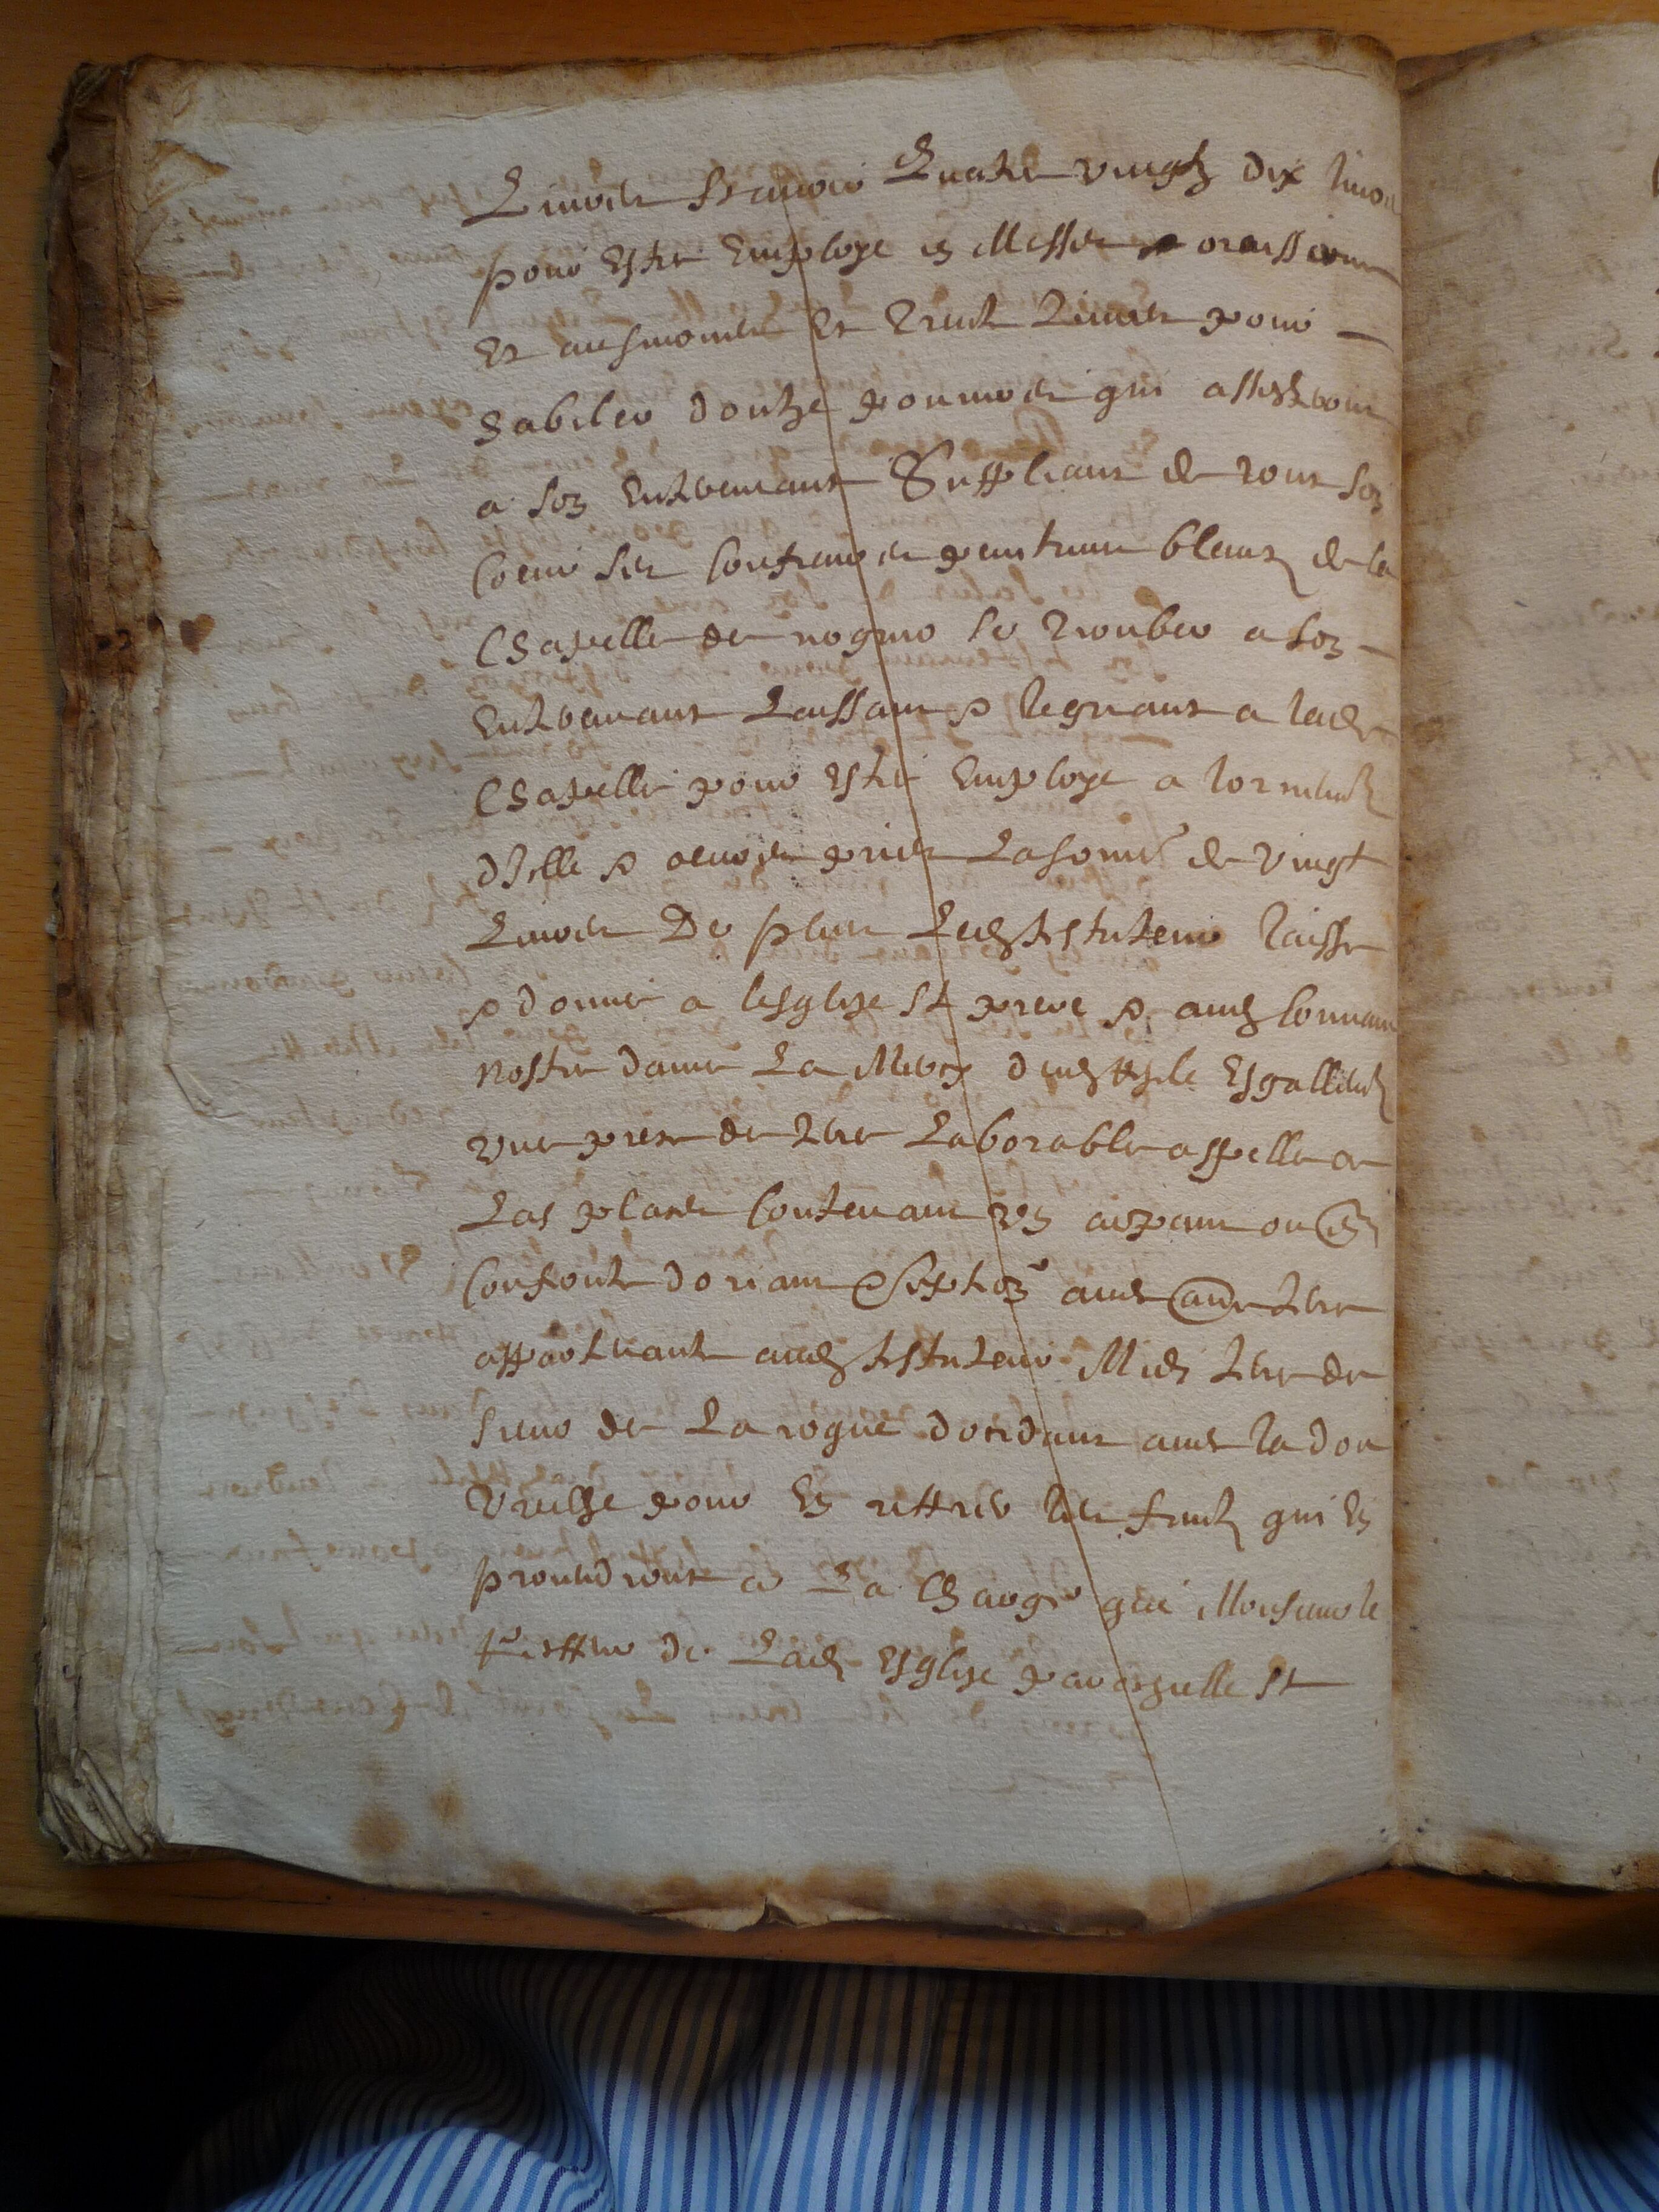 Livres scavoir Quatre vingtz dix livres
pour estre employe en Messes oraissions
et ausmones et trente Livres pour
habiler doutze pourvres qui assisteront
a son enterrement Suppliant de tout son
Coeur ses confreres penitens blans de la
Chapelle de se trouber a son
enterremant Laissant & leguant a lad
Chapelle pour estre employe a lornement
dicelle & oeuvres pies La some de vingt
Livres De plus Led testateur laisse
& donne a lesglise St pierre & aud couvant
nostre dame La Mercy dud Esgallement
une piece de terre Laborable appellee a
Las places contenant un arpant ou en
Confronte doriant & septen avec autre terre
appartenant aud testateur Midi terre de
sieur de La rogue doccidant avec la dou
pour en rettirer les fruitz qui en
proviendront a La Charge que Monsieur le
de Lad Esglise parroysielle St